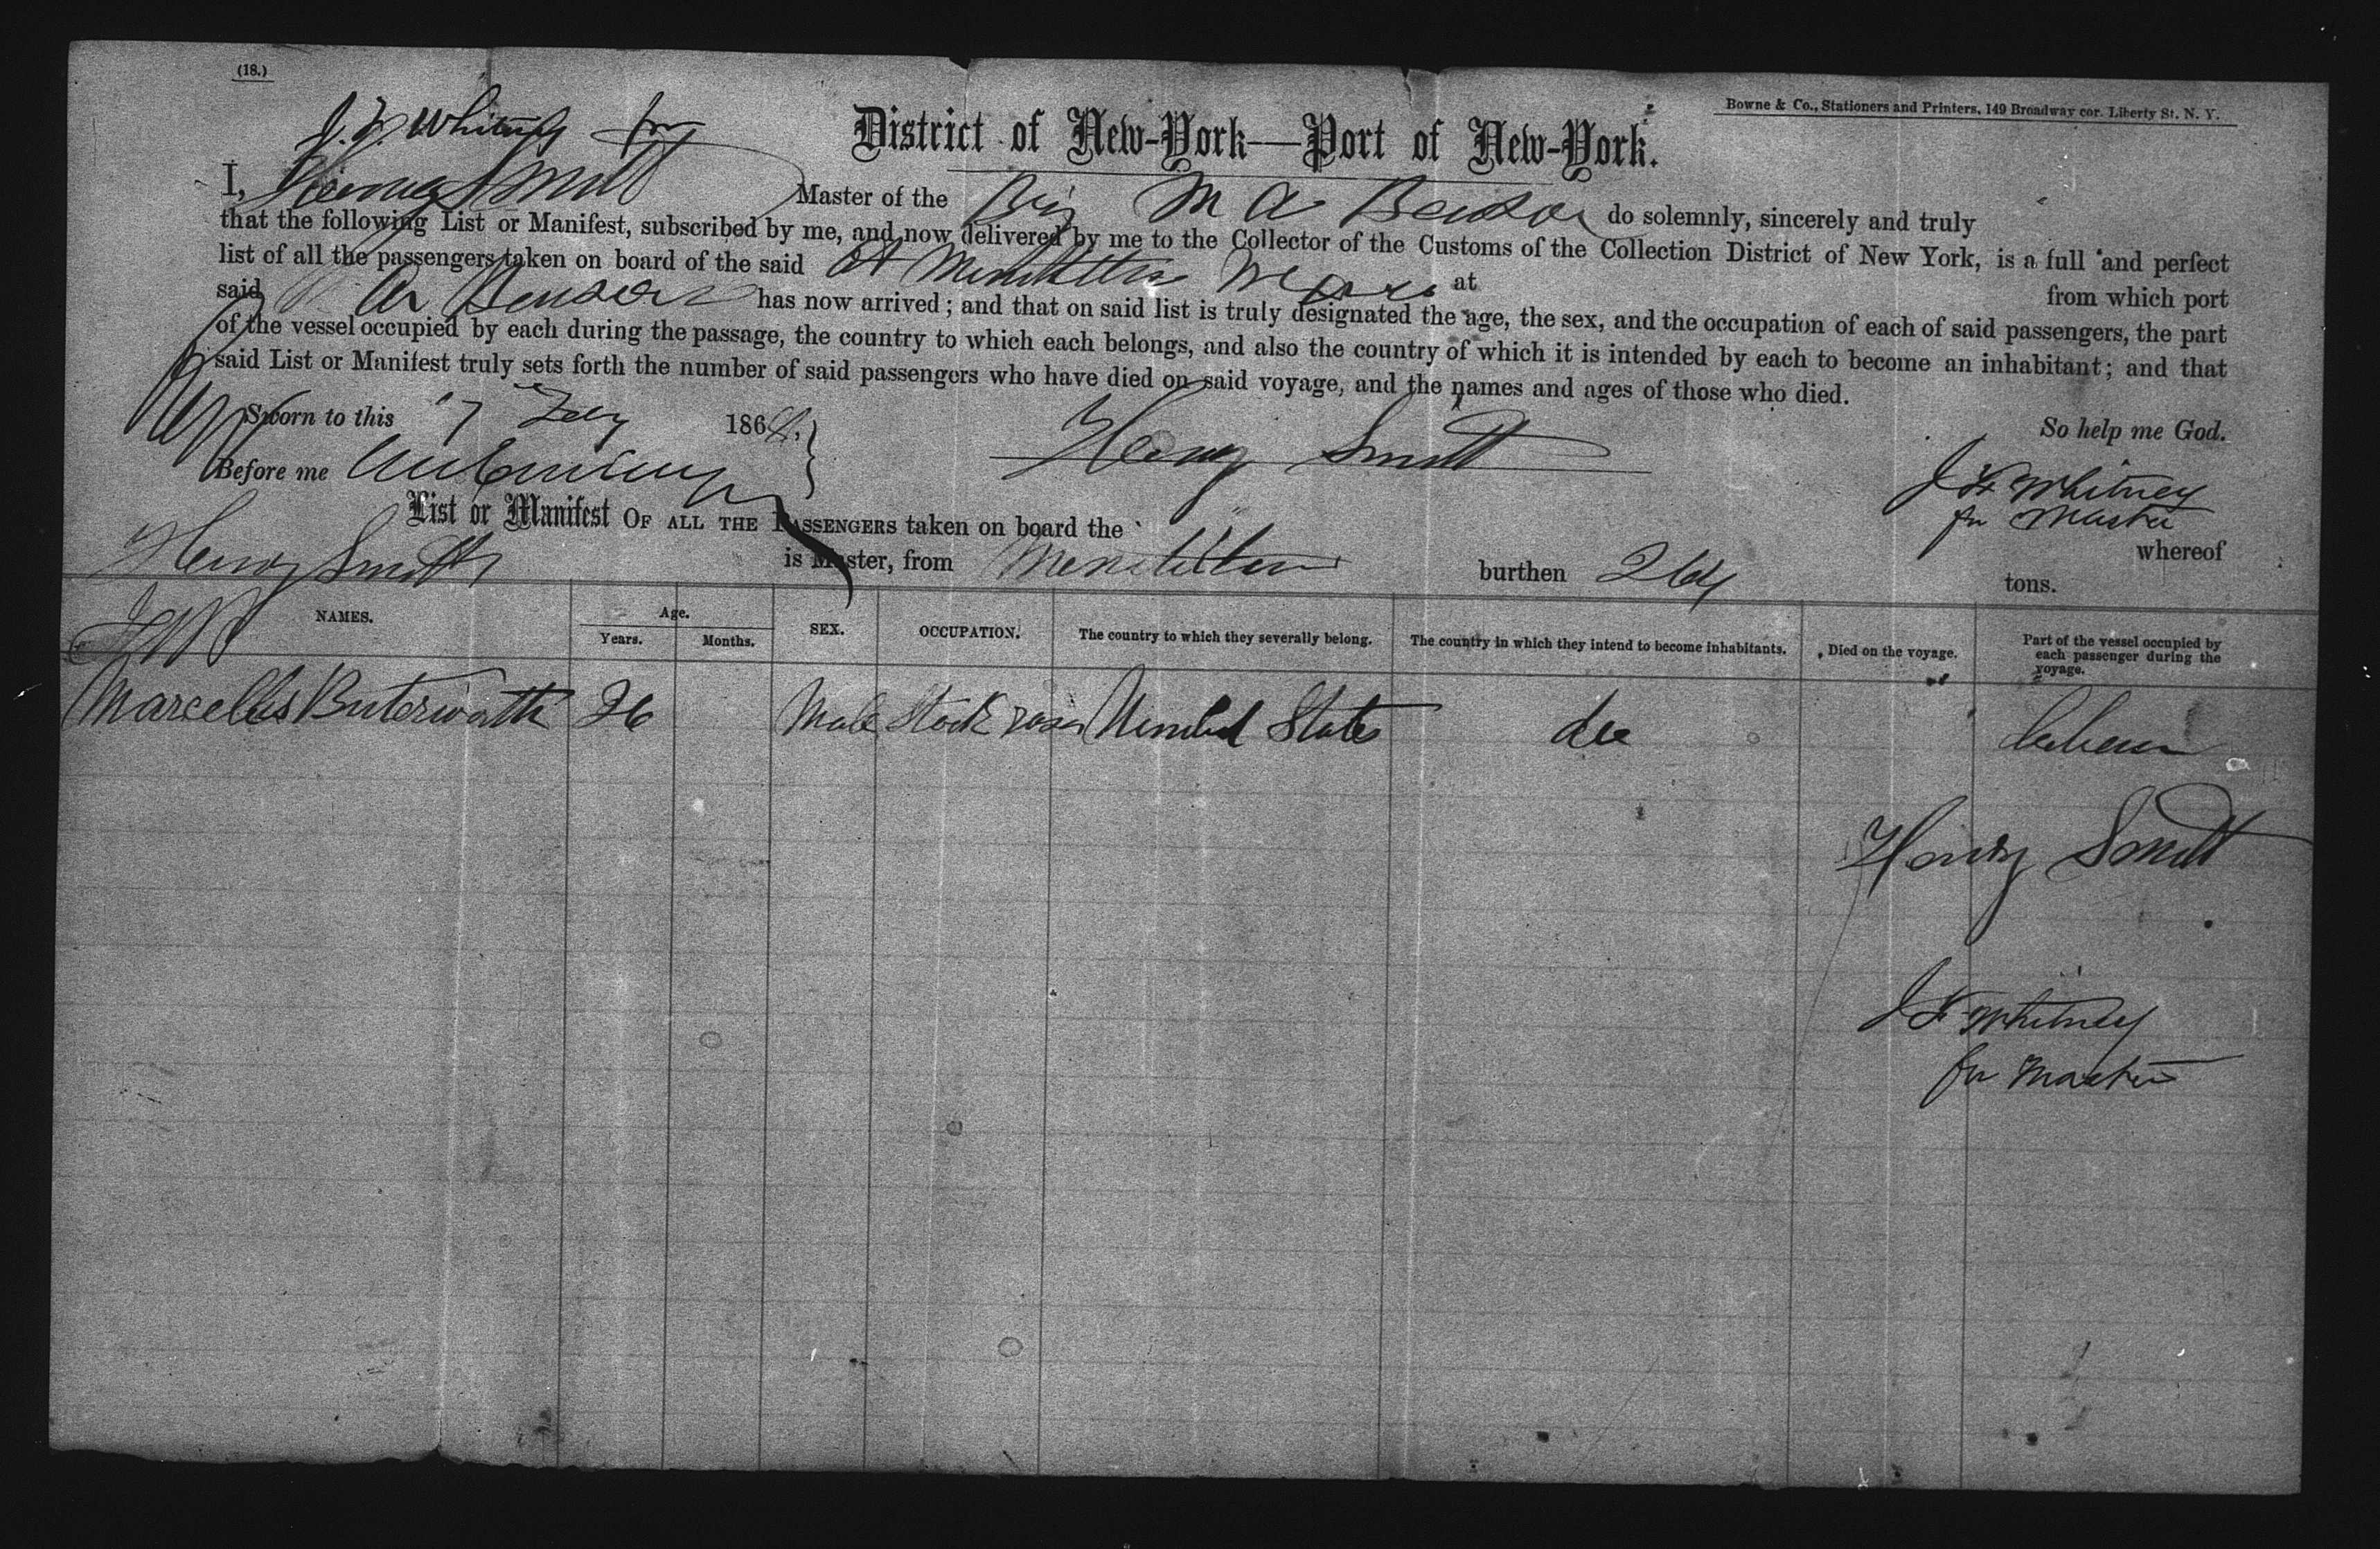 (18.)
Bowne & Co., Stationers and Printers, 149 Broadway cor. Liberty St. N. Y.
J. F. Whitney for
District of New-York—Port of New-York.
I, Henry Smith Master of the Brig M A Benson do solemnly, sincerely and truly
that the following List or Manifest, subscribed by me, and now delivered by me to the Collector of the Customs of the Collection District of New York, is a full and perfect
list of all the passengers taken on board of the said at from which port
said Benson has now arrived; and that on said list is truly designated the age, the sex, and the occupation of each of said passengers, the part
of the vessel occupied by each during the passage, the country to which each belongs, and also the country of which it is intended by each to become an inhabitant; and that
said List or Manifest truly sets forth the number of said passengers who have died on said voyage, and the names and ages of those who died.
So help me God.
Sworn to this 7 186
Henry Smith
Before me
J F Whitney
for Master
List or Manifest OF ALL THE PASSENGERS taken on board the whereof
Henry Smith is Master, from burthen 264 tons.
NAMES. Age. Years. Months. SEX. OCCUPATION. The country to which they severally belong. The country in which they intend to become inhabitants. Died on the voyage. Part of the vessel occupied by each passenger during the voyage.
Marcellus Buterworth 26 Male Stock United States do
Henry Smith
J F Whitney
for Master